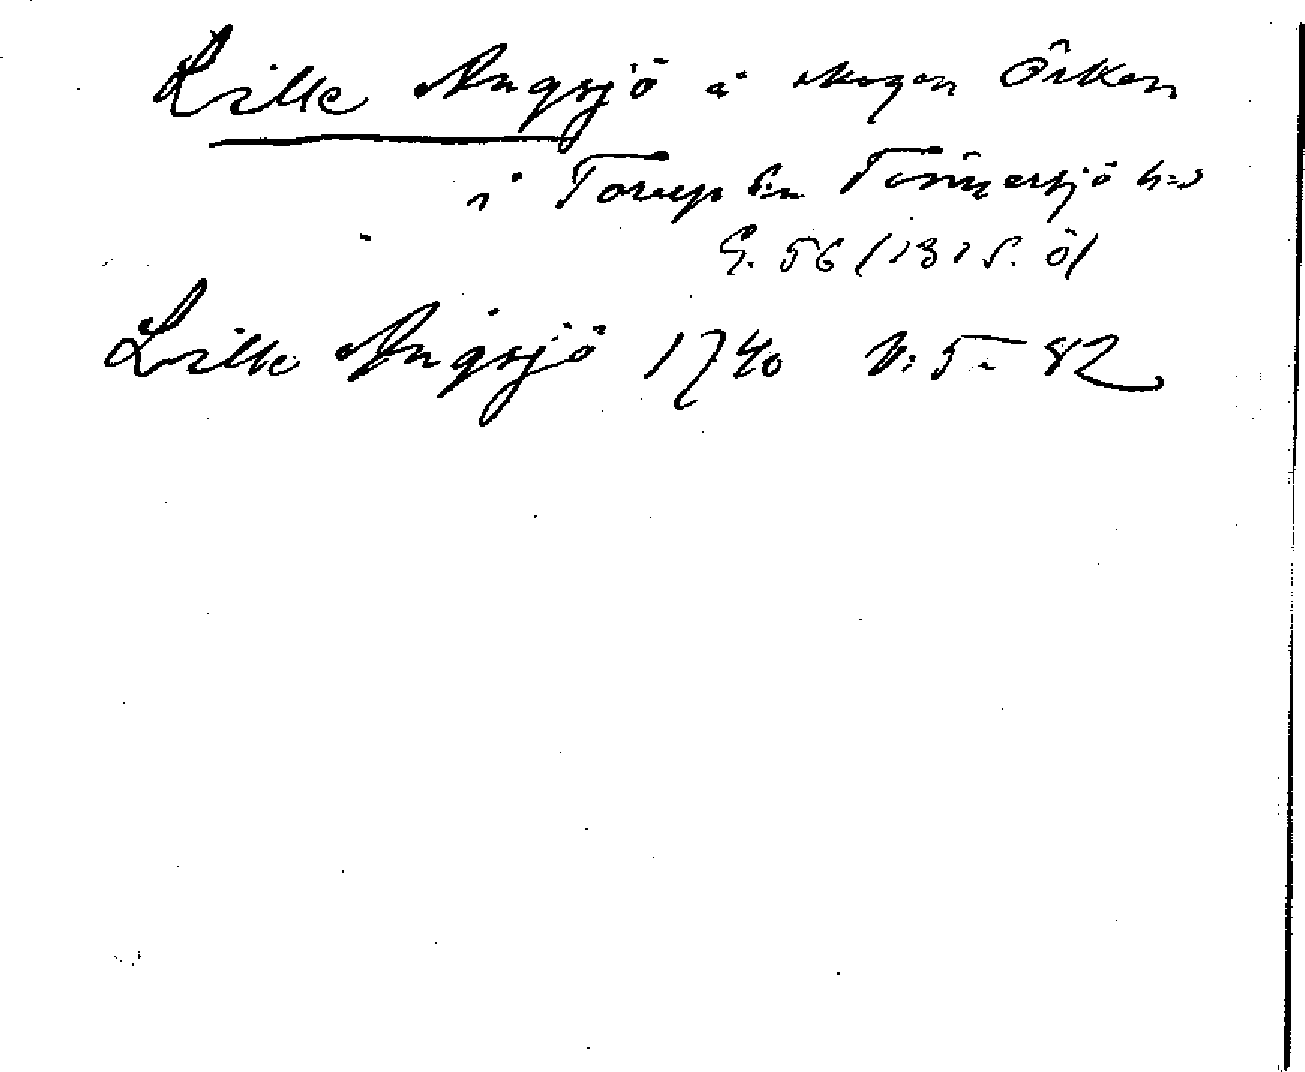 Lille Ängsjö å skogen Öiken
i Torup s:n Tönnersjö h:d
G. 56 / 1315. ö/
Lille Ängsjö 1740 V: 5 - 82